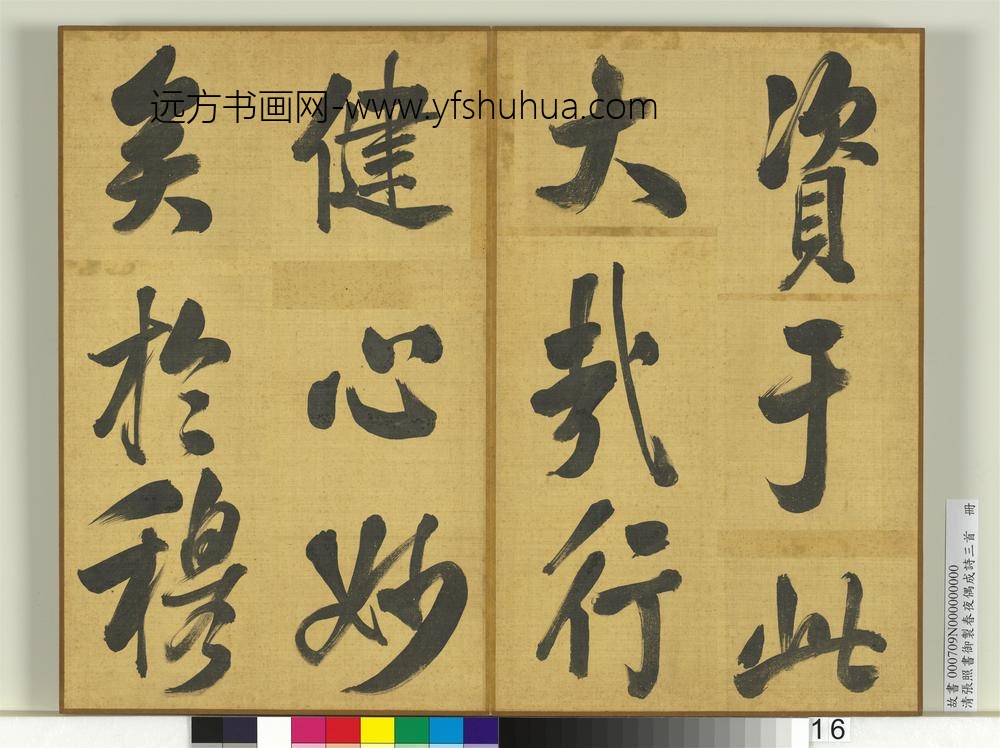 資于此
大哉行
健心妙
矣於穆
远方书画网-www.yfshuhua.com
故書 000709N000000000
清張照書御製春夜偶成詩三首 冊
16